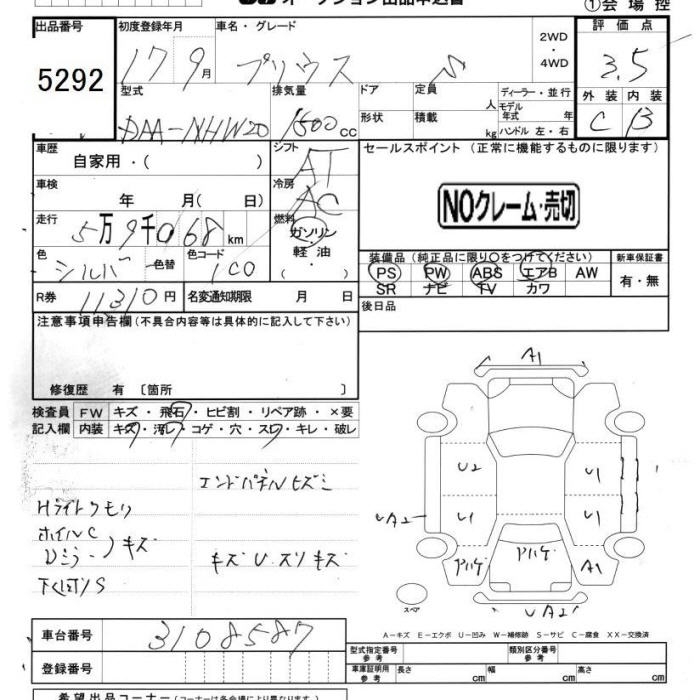 オークション出品申込書
①会場控
出品番号 初度登録年月 車名・グレード 2WD・4WD 評価点
5292 17 9月 プリウス S 3.5
型式 排気量 ドア 定員 人 ディーラー・並行 外装 内装
DAA-NHW20 1500cc 形状 積載 kg モデル年式 年 C B
ハンドル 左・右
車歴 シフト セールスポイント (正常に機能するものに限ります)
自家用・( ) AT
車検 冷房
年 月( 日) AC NOクレーム・売切
走行 燃料
5万9千068km ガソリン・軽油・
色 色替 色コード 装備品 (純正品に限り○をつけてください) 新車保証書
シルバー 1C0 PS PW ABS エアB AW 有・無
SR ナビ TV カワ
R券 11310円 名変通知期限 月 日 後日品
注意事項申告欄 (不具合内容等は具体的に記入して下さい)
修復歴 有 〔箇所 〕
検査員 FW キズ・飛石・ヒビ割・リペア跡・×要
記入欄 内装 キズ・汚レ・コゲ・穴・スレ・キレ・破レ
エンドパネルヒズミ
Hライトクモリ
ホイルC
キズ
キズU.スリキズ
下くぼりS
A1
U2 U1
UA2 U1 U1
アハゲ アハゲ A1
UA2
スペア
A-キズ E-エクボ U-凹み W-補修跡 S-サビ C-腐食 XX-交換済
車台番号 3108587
登録番号
型式指定番号 参考 類別区分番号 参考
車庫証明用 参考 長さ cm 幅 cm 高さ cm
希望出品コーナー (コーナーは各会場により異なります)